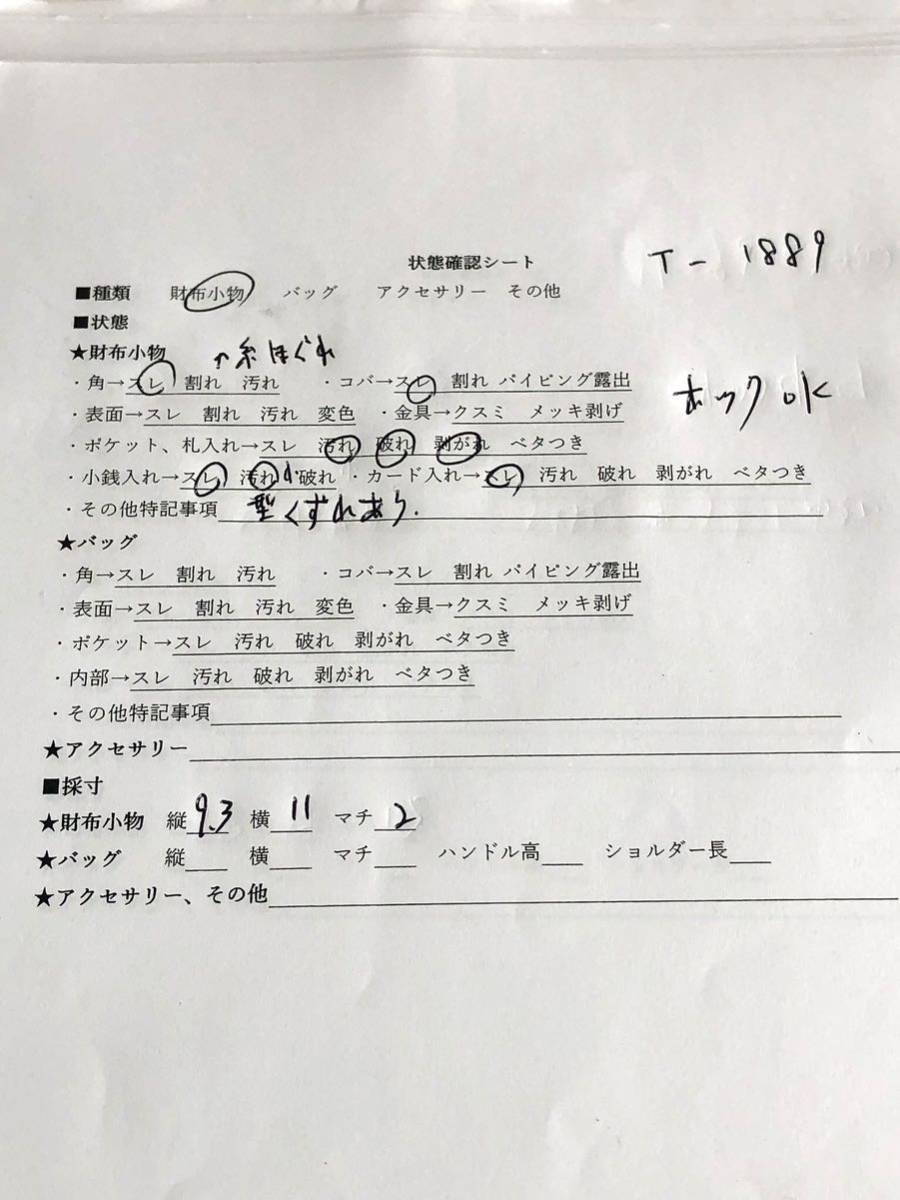 状態確認シート
T- 1889
■種類 財布小物 バッグ アクセサリー その他
■状態
★財布小物 ↑糸ほぐれ
・角→スレ 割れ 汚れ ・コバ→スレ 割れ パイピング露出
ホックok
・表面→スレ 割れ 汚れ 変色 ・金具→クスミ メッキ剥げ
・ポケット、札入れ→スレ 汚れ 破れ 剥がれ ベタつき
・小銭入れ→スレ 汚れ 小 破れ ・カード入れ→スレ 汚れ 破れ 剥がれ ベタつき
・その他特記事項 型くずれあり.
★バッグ
・角→スレ 割れ 汚れ ・コバ→スレ 割れ パイピング露出
・表面→スレ 割れ 汚れ 変色 ・金具→クスミ メッキ剥げ
・ポケット→スレ 汚れ 破れ 剥がれ ベタつき
・内部→スレ 汚れ 破れ 剥がれ ベタつき
・その他特記事項
★アクセサリー
■採寸
★財布小物 縦 9.3 横 11 マチ 2
★バッグ 縦 横 マチ ハンドル高 ショルダー長
★アクセサリー、その他